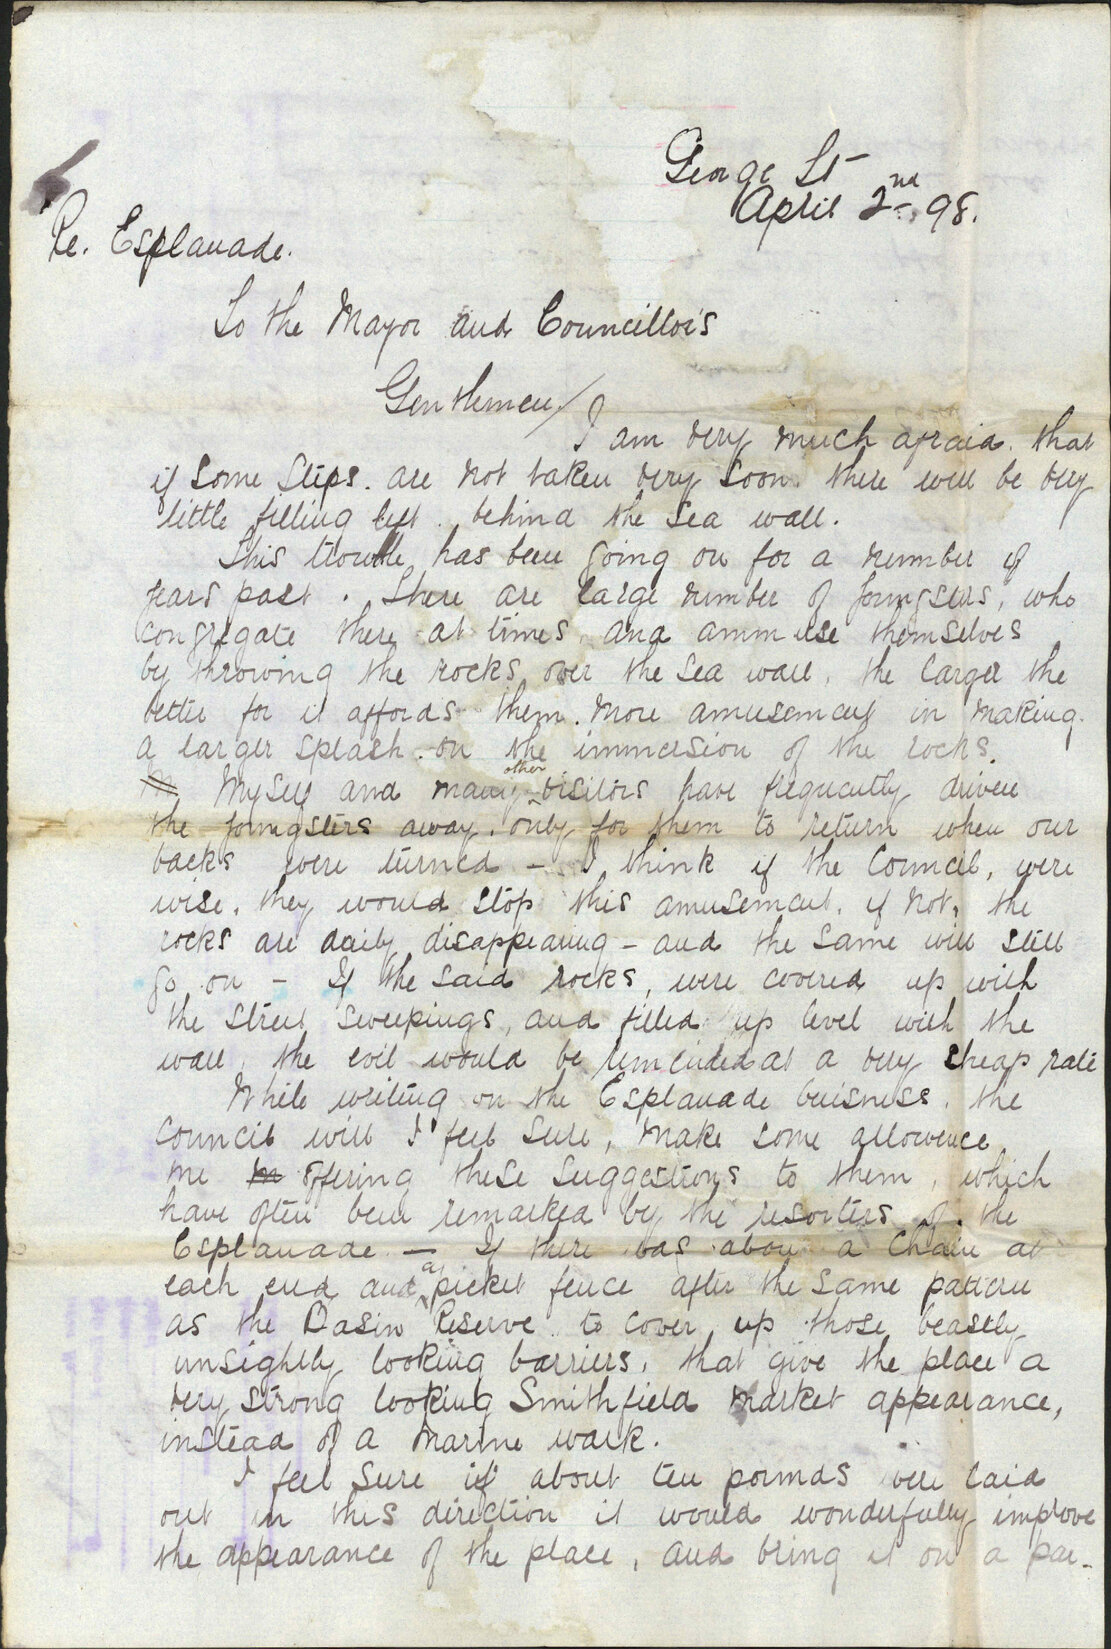 George St
April 2nd 98.
Re. Esplanade.
To the Mayor and Councillors
Gentlemen/
I am very much afraid. that
if some steps. are not taken very soon. there will be very
little filling left. behind the sea wall.
This trouble has been going on for a number of
years past. There are large number of youngsters, who
congregate there at times, and ammuse themselves
by throwing the rocks over the sea wall, the larger the
better for it affords them. more amusement in making
a larger splash. on the immersion of the rocks.
Myself and many other visitors have frequently driven
the youngsters away. only for them to return when our
backs were turned – I think if the Council, were
wise, they would stop this amusement. if not, the
rocks are daily disappearing – and the same will still
go on – If the said rocks, were covered up with
the street sweepings, and filled up level with the
wall, the evil would be remeided at a very cheap rate
While writing on the Esplanade buisness. the
Council will I feel sure, make some allowence,
me in offering these suggestions to them, which
have often been remarked by the resorters of the
Esplanade – If there was about a chain at
each end and a picket fence after the same pattern
as the Basin Reserve to cover up those beastly
unsightly looking barriers, that give the place a
very strong looking Smithfield market appearance,
instead of a marine walk.
I feel sure if about ten pounds were laid
out in this direction it would wonderfully improve
the appearance of the place, and bring it on a par-